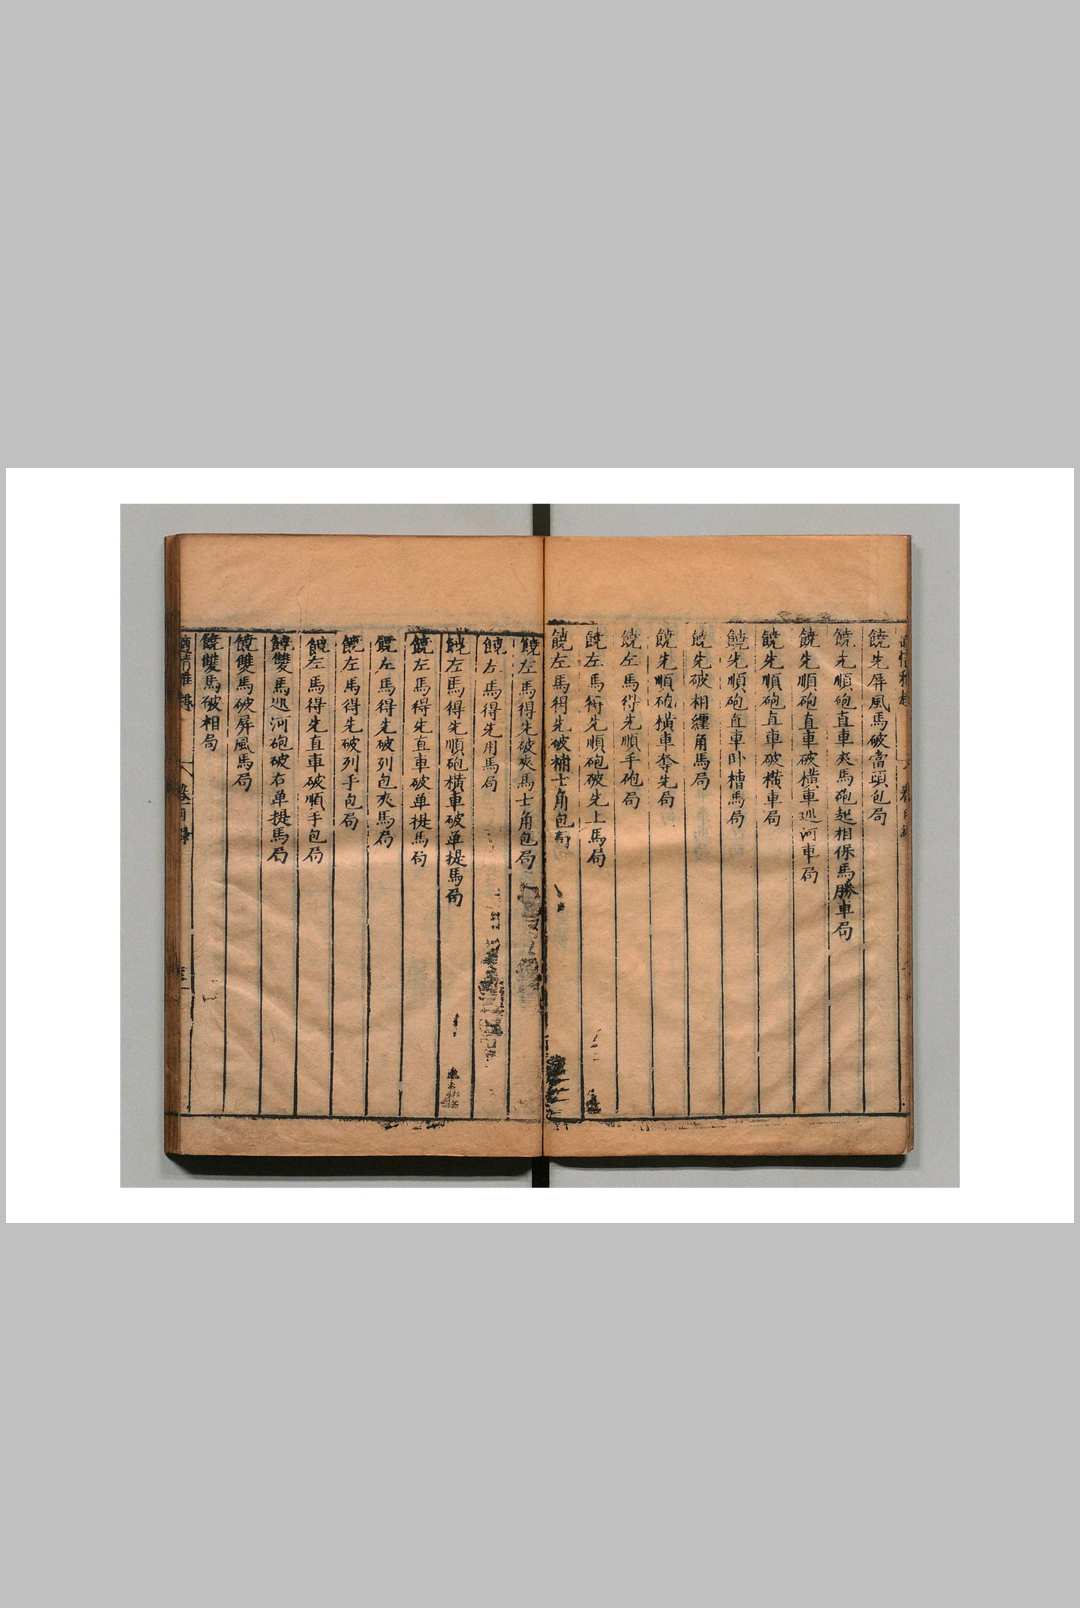 饒先屏風馬破當頭包局
饒先順砲直車夾馬砲起相保馬勝車局
饒先順砲直車破橫車巡河車局
饒先順砲直車破橫車局
饒先順砲直車卧槽馬局
饒先破相纏角馬局
饒先順砲橫車奪先局
饒左馬得先順手砲局
饒左馬得先順砲破先上馬局
饒左馬得先破補士角包局
饒左馬得先破夾馬士角包局
饒左馬得先用馬局
饒左馬得先順砲橫車破单提馬局
饒左馬得先直車破单提馬局
饒左馬得先破列包夾馬局
饒左馬得先破列手包局
饒左馬得先直車破順手包局
饒雙馬巡河砲破右单提馬局
饒雙馬破屏風馬局
饒雙馬破相局
適情雅趣